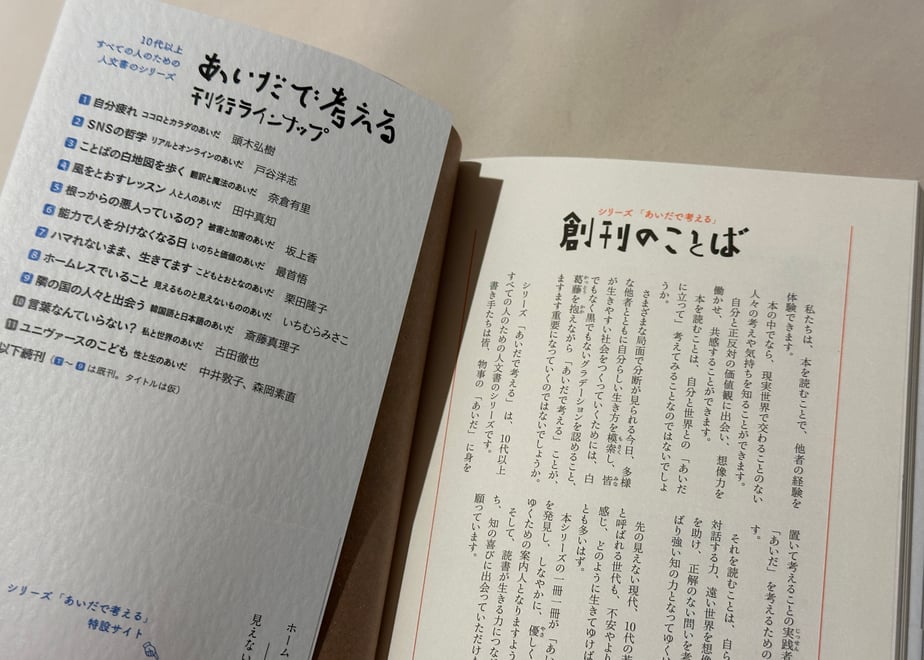 10代以上
すべての人のための
人文書のシリーズ
あいだで考える
刊行ラインナップ
1 自分疲れ ココロとカラダのあいだ 頭木弘樹
2 SNSの哲学 リアルとオンラインのあいだ 戸谷洋志
3 ことばの白地図を歩く 翻訳と魔法のあいだ 奈倉有里
4 風をとおすレッスン 人と人のあいだ 田中真知
5 根っからの悪人っているの? 被害と加害のあいだ 坂上香
6 能力で人を分けなくなる日 いのちと価値のあいだ 最首悟
7 ハマれないまま、生きてます こどもとおとなのあいだ 栗田隆子
8 ホームレスでいること 見えるものと見えないもののあいだ いちむらみさこ
9 隣の国の人々と出会う 韓国語と日本語のあいだ 斎藤真理子
10 言葉なんていらない? 私と世界のあいだ 古田徹也
11 ユニヴァースのこども 性と生のあいだ 中井敦子、森岡素直
以下続刊(1〜9は既刊。タイトルは仮)
シリーズ「あいだで考える」
特設サイト
ホーム
見えない
シリーズ「あいだで考える」
創刊のことば
私たちは、本を読むことで、他者の経験を
体験できます。
本の中でなら、現実世界で交わることのない
人々の考えや気持ちを知ることができます。
自分と正反対の価値観に出会い、想像力を
働かせ、共感することができます。
本を読むことは、自分と世界との「あいだ
に立って」考えてみることなのではないでしょ
うか。
さまざまな局面で分断が見られる今日、多様
な他者とともに自分らしい生き方を模索し、皆
が生きやすい社会をつくっていくためには、白
でもなく黒でもないグラデーションを認めること、
葛藤を抱えながら「あいだで考える」ことが、
ますます重要になっていくのではないでしょうか。
シリーズ「あいだで考える」は、10代以上
すべての人のための人文書のシリーズです。
書き手たちは皆、物事の「あいだ」に身を
置いて考えることの実践者
「あいだ」を考えるための
す。
それを読むことは、自ら
対話する力、遠い世界を想像
を助け、正解のない問いを考
ばり強い知の力となってゆく
先の見えない現代、10代の若
と呼ばれる世代も、不安やより
感じ、どのように生きてゆけば
とも多いはず。
本シリーズの一冊一冊が「あい
を発見し、しなやかに、優しく
ゆくための案内人となりますよう
そして、読書が生きる力につな
ち、知の喜びに出会っていただけ
願っています。